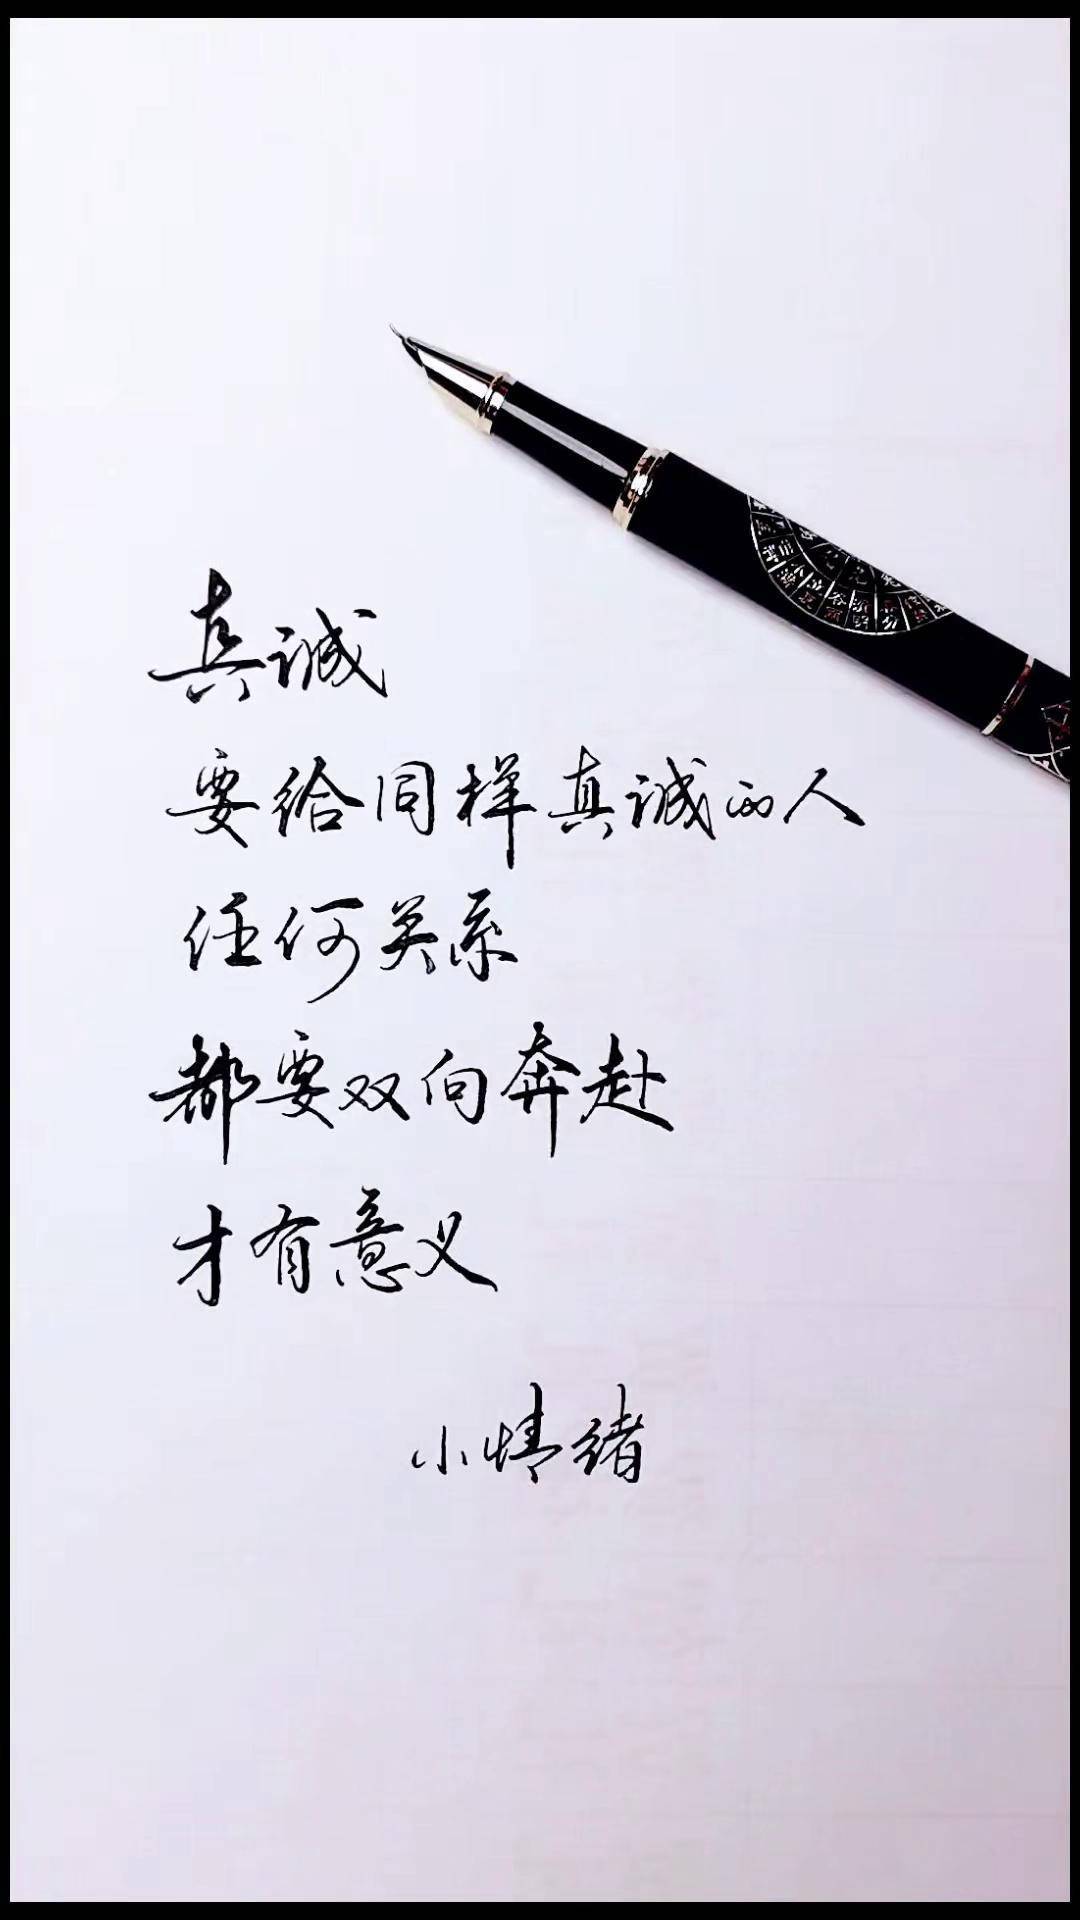 真诚
要给同样真诚的人
任何关系
都要双向奔赴
才有意义
小情绪